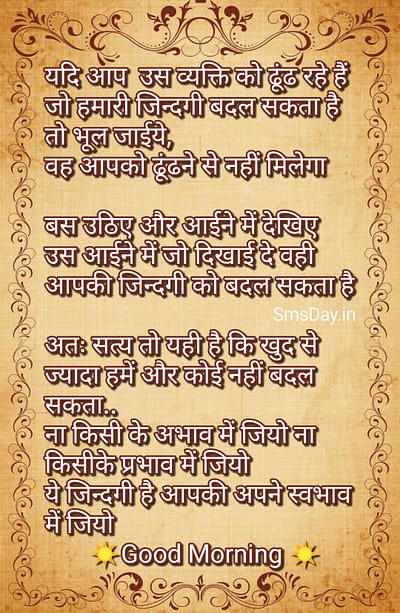 यदि आप उस व्यक्ति को ढूंढ रहे हैं
जो हमारी जिन्दगी बदल सकता है
तो भूल जाईये,
वह आपको ढूंढने से नहीं मिलेगा
बस उठिए और आईने में देखिए
उस आईने में जो दिखाई दे वही
आपकी जिन्दगी को बदल सकता है
SmsDay.in
अतः सत्य तो यही है कि खुद से
ज्यादा हमें और कोई नहीं बदल
सकता..
ना किसी के अभाव में जियो ना
किसीके प्रभाव में जियो
ये जिन्दगी है आपकी अपने स्वभाव
में जियो
☀️Good Morning ☀️